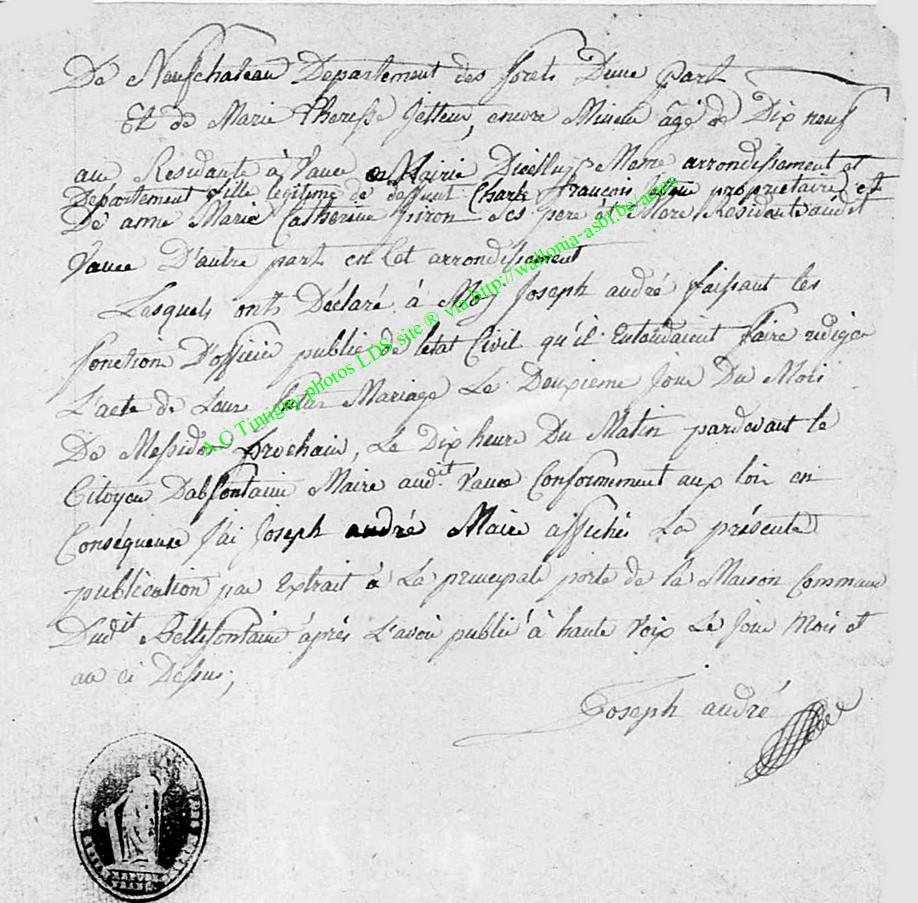 De Neufchateau Departement des forets D'une part
Et de Marie Theresse Jetteur, encore Mineur âgé de Dix neuf
ans Résidante à Vance Mairie Même arrondissement et
Departement fille legitime de deffunt Charle François propriétaire et
De anne Marie Catherine Firon ses pere et Mere Residante audit
Vance D'autre part en Cet arrondissement
Lesquels onts Déclaré à Moy Joseph andré faissant les
fonction D'officier public de letat Civil qu'il Entandaient faire rediger
L'acte de Leur futur Mariage Le Deuxieme Jour Du Mois
De Messidor prochain, Le Dix heure Du Matin pardevant le
Citoyen Dabfontaine Maire audit Vance Conformement aux loix en
Conséquense J'ai Joseph andré Maire affiché La présente
publication par Extrait à La principale porte de la Maison Commune
Dudit Bellefontaine âprés L'avoir publié à haute voix Le Jour Mois et
an ci Dessus;
Joseph andré
A.C Tintigny photos LDS site ® via http://wallonia-asbl.be/asgw
REPUB
FRANC